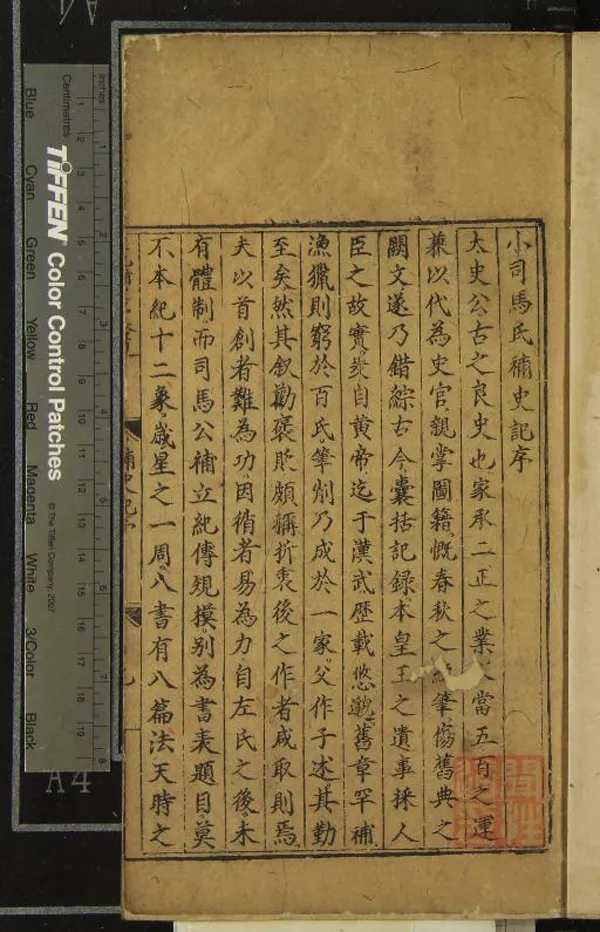 小司馬氏補史記序
太史公古之良史也家承二正之業人當五百之運
兼以代為史官親掌圖籍慨春秋之絕筆傷舊典之
闕文遂乃錯綜古今囊括記録本皇王之遺事採人
臣之故實爰自黄帝迄于漢武歴載悠邈舊章罕補
漁獵則窮於百氏筆削乃成於一家父作子述其勤
至矣然其叙勸褒貶頗稱折衷後之作者咸取則焉
夫以首創者難為功因循者易為力自左氏之後未
有體制而司馬公補立紀傳規摸别為書表題目莫
不本紀十二象歲星之一周八書有八篇法天時之
補史記序
Inches
Centimetres
1 2 3 4 5 6 7 8
1 2 3 4 5 6 7 8 9 10 11 12 13 14 15 16 17 18 19
TIFFEN Color Control Patches
© The Tiffen Company, 2007
Blue Cyan Green Yellow Red Magenta White 3/Color Black
A4